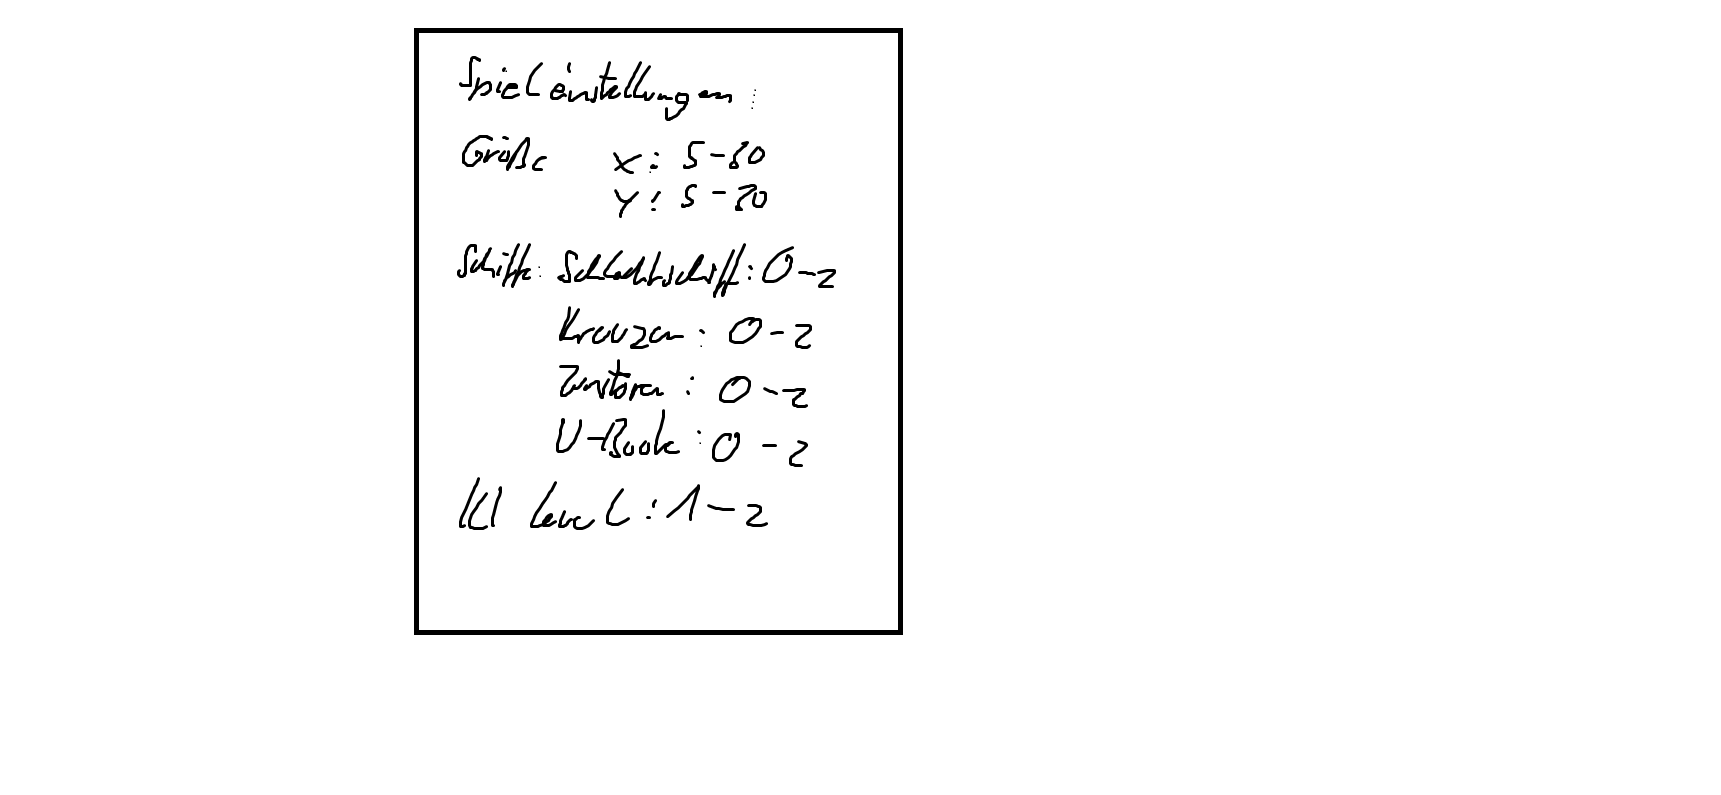 Spieleinstellungen:
Größe X: 5-20
Y: 5-20
Schiffe: Schlachtschiff: 0-2
Kreuzer: 0-2
Zerstörer: 0-2
U-Boote: 0-2
KI Level: 1-2